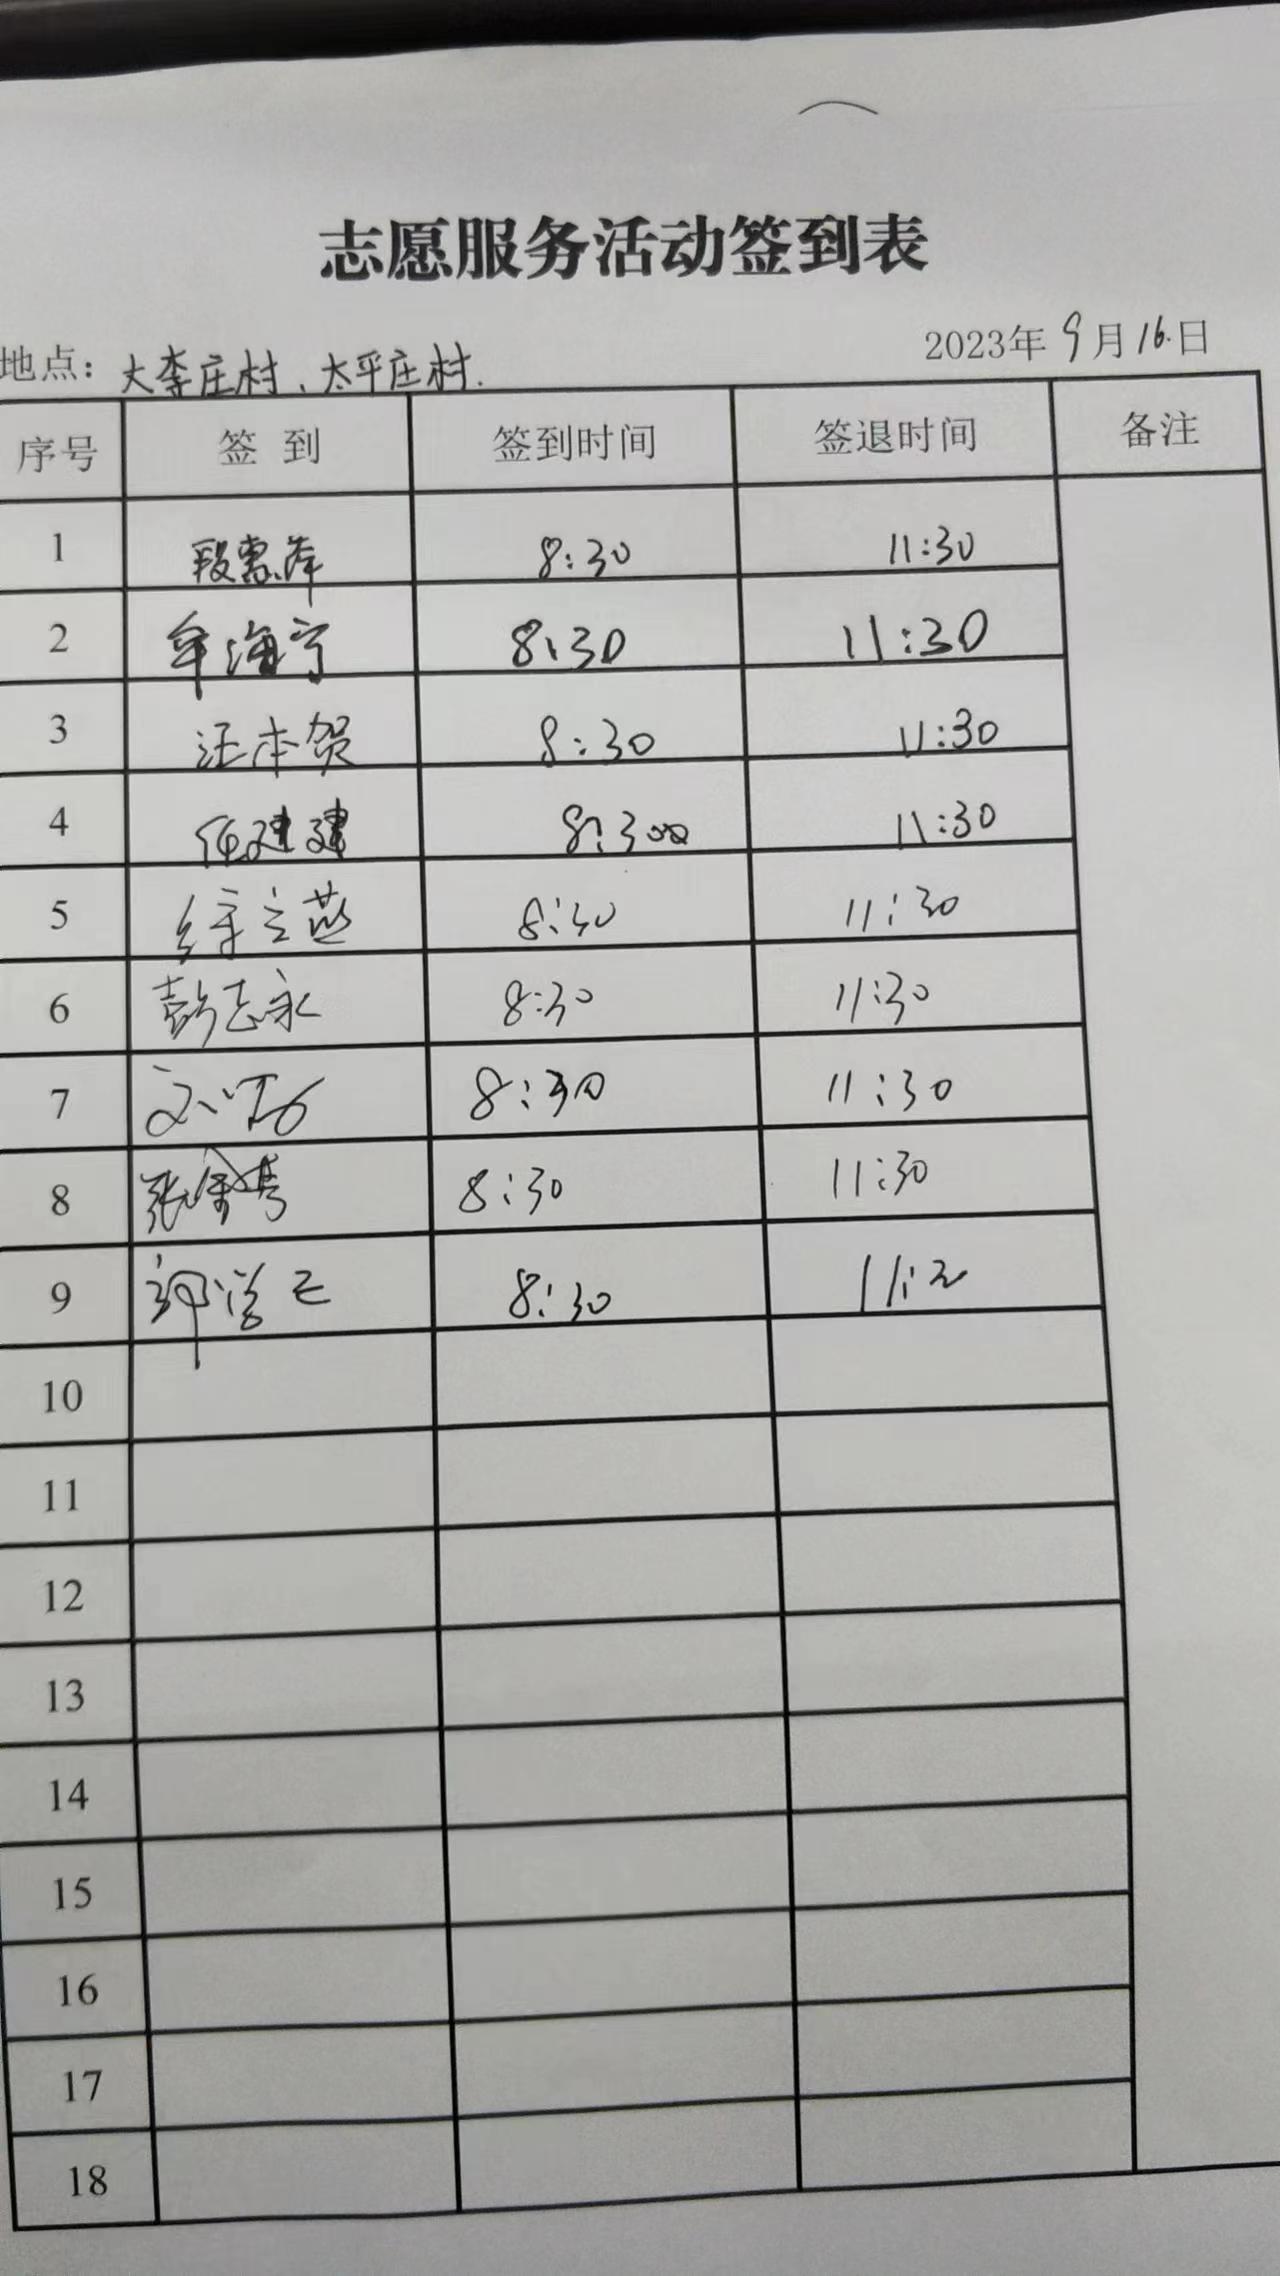 志愿服务活动签到表
地点：大李庄村、太平庄村. 2023年9月16日
序号 签到 签到时间 签退时间 备注
1 段惠萍 8:30 11:30
2 牟海宁 8:30 11:30
3 汪本贺 8:30 11:30
4 任建建 8:30 11:30
5 徐立燕 8:30 11:30
6 彭志永 8:30 11:30
7 8:30 11:30
8 8:30 11:30
9 8:30
10
11
12
13
14
15
16
17
18